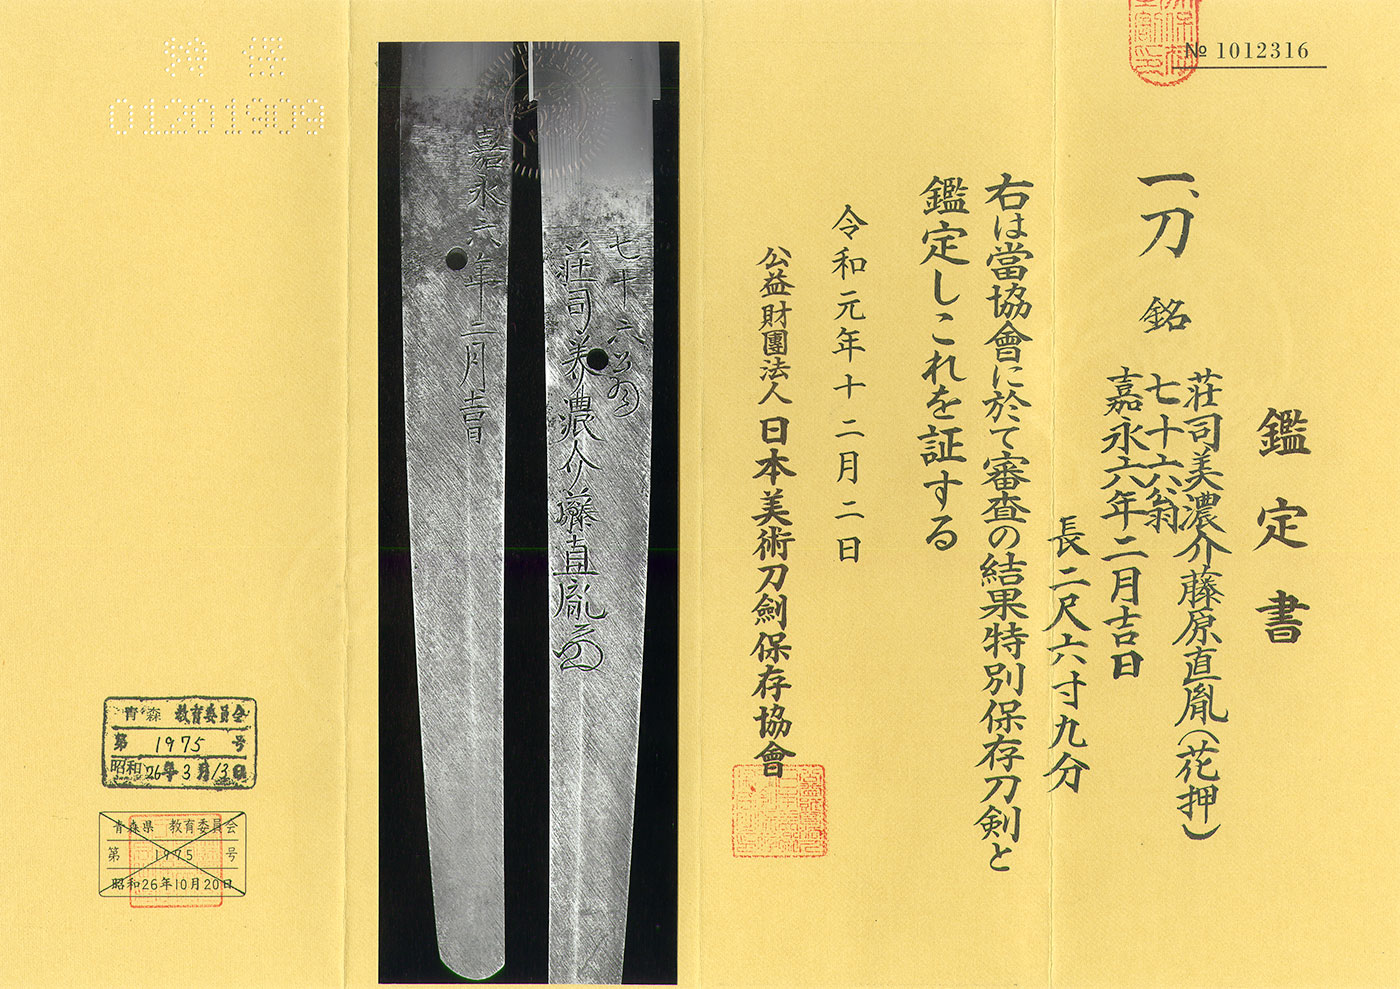 № 1012316
鑑定書
一、刀 銘
荘司美濃介藤原直胤(花押)
七十六翁
嘉永六年二月吉日
長二尺六寸九分
右は當協會に於て審査の結果特別保存刀剣と
鑑定しこれを証する
令和元年十二月二日
公益財團法人 日本美術刀劍保存協會
七十六翁
荘司美濃介藤直胤
嘉永六年二月吉日
特保
01201909
青森 教育委員会
第 1975 号
昭和26年3月13日
青森県 教育委員会
第 1975 号
昭和26年10月20日